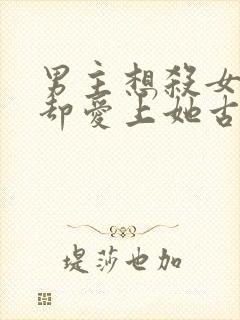 男主想殺女
却愛上她古
堤莎也加